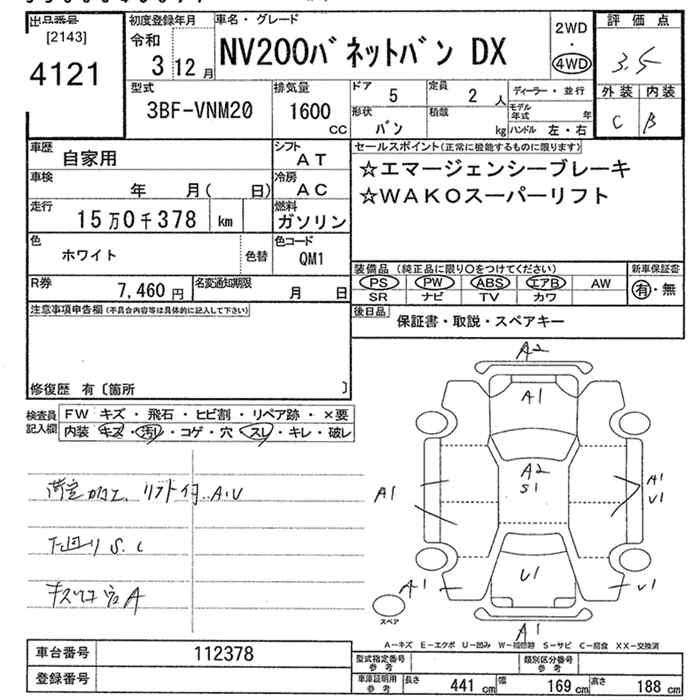 出品番号
[2143]
4121
初度登録年月
令和
3 12 月
車名・グレード
NV200バネットバン DX
2WD
・
4WD
評価点
3.5
外装 内装
C B
型式
3BF-VNM20
排気量
1600
CC
ドア 5
形状 バン
定員 2 人
積載 kg
ディーラー・並行
モデル年式 年
ハンドル 左・右
車歴 自家用
シフト AT
車検 年 月( 日)
冷房 AC
走行 15万0千378 km
燃料 ガソリン
色 ホワイト
色替
色コード QM1
R券 7,460 円
名変通知期限 月 日
セールスポイント(正常に機能するものに限ります)
☆エマージェンシーブレーキ
☆WAKOスーパーリフト
装備品 (純正品に限り〇をつけてください)
PS PW ABS エアB AW
SR ナビ TV カワ
新車保証書
有・無
後日品 保証書・取説・スペアキー
注意事項申告欄(不具合内容等は具体的に記入して下さい)
修復歴 有〔箇所 〕
検査員記入欄
FW キズ・飛石・ヒビ割・リペア跡・×要
内装 キズ・汚レ・コゲ・穴・スレ・キレ・破レ
荷室加工、リフト付 A.U
下回り S.C
A
A2
A1
A2
S1
A1
A1
U1
U1
A1
U1
A1
スペア
A-キズ E-エクボ U-凹み W-補修跡 S-サビ C-腐食 XX-交換済
車台番号 112378
登録番号
型式指定番号 参考
類別区分番号 参考
車庫証明用 参考
長さ 441 cm 幅 169 cm 高さ 188 cm